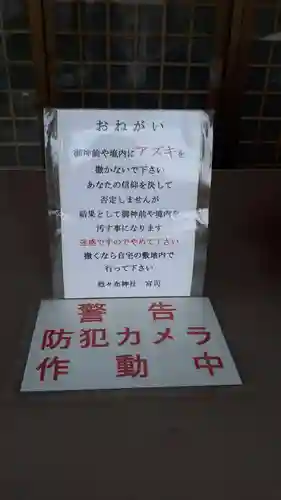 おねがい
御神前や境内にアズキを
撒かないで下さい
あなたの信仰を決して
否定しませんが
結果として御神前や境内を
汚す事になります
迷惑ですのでやめて下さい
撒くなら自宅の敷地内で
行って下さい
神社 宮司
警告
防犯カメラ
作動中